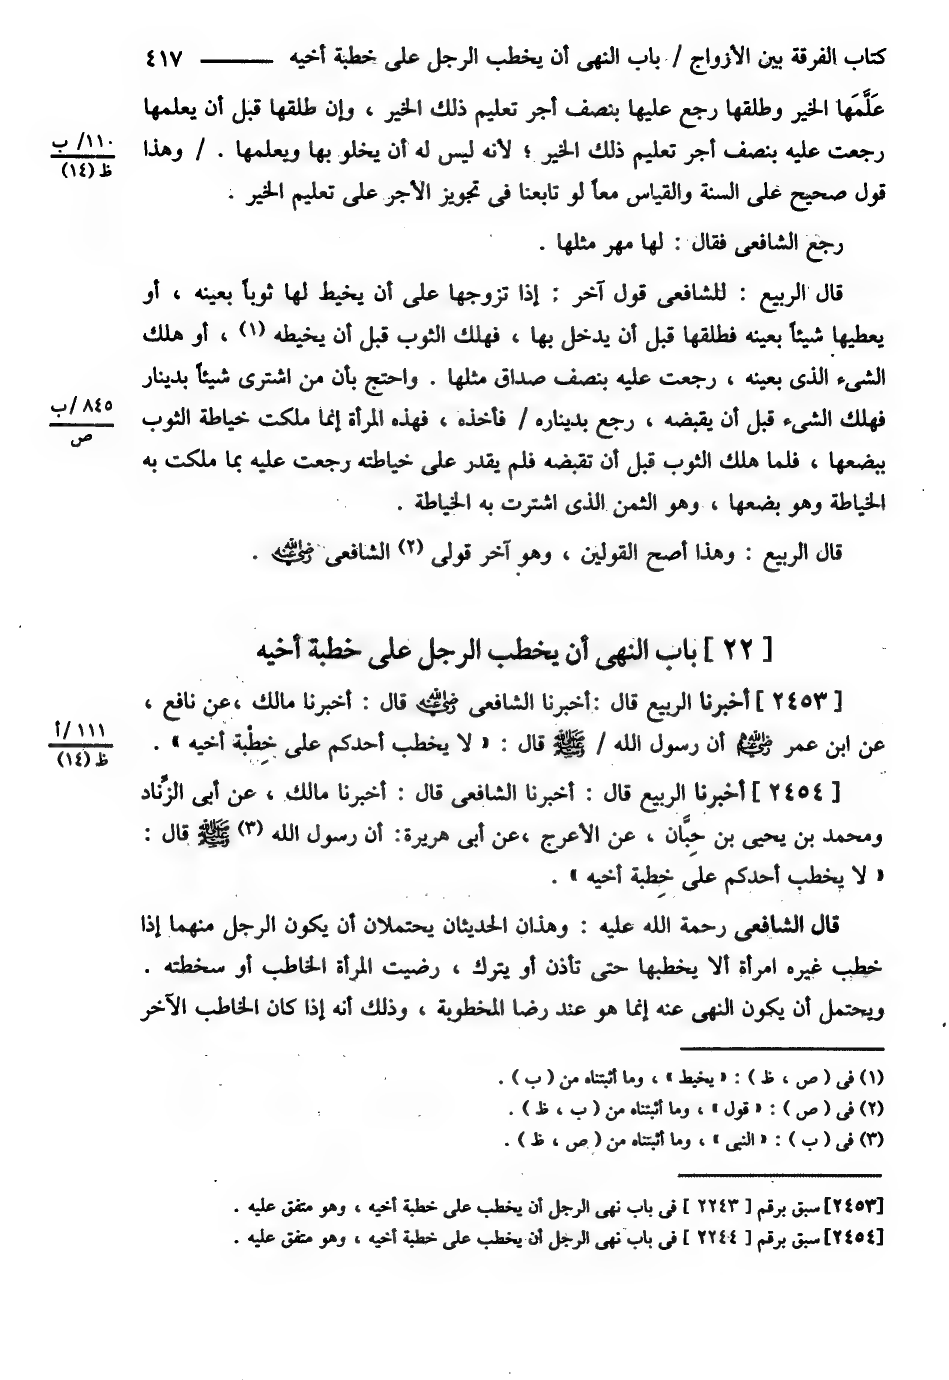 كتاب الفرقة بين الأزواج / باب النهى أن يخطب الرجل على خطبة أخيه ——— ٤١٧
عَلَّمَها الخير وطلقها رجع عليها بنصف أجر تعليم ذلك الخير ، وإن طلقها قبل أن يعلمها
رجعت عليه بنصف أجر تعليم ذلك الخير ؛ لأنه ليس له أن يخلو بها ويعلمها . / وهذا
١١٠/ ب
ظ (١٤)
قول صحيح على السنة والقياس معاً لو تابعنا فى تجويز الأجر على تعليم الخير .
رجع الشافعى فقال : لها مهر مثلها .
قال الربيع : للشافعى قول آخر : إذا تزوجها على أن يخيط لها ثوباً بعينه ، أو
يعطيها شيئاً بعينه فطلقها قبل أن يدخل بها ، فهلك الثوب قبل أن يخيطه (١) ، أو هلك
الشىء الذى بعينه ، رجعت عليه بنصف صداق مثلها . واحتج بأن من اشترى شيئاً بدينار
فهلك الشىء قبل أن يقبضه ، رجع بديناره / فأخذه ، فهذه المرأة إنما ملكت خياطة الثوب
٨٤٥ /ب
ص
ببضعها ، فلما هلك الثوب قبل أن تقبضه فلم يقدر على خياطته رجعت عليه بما ملكت به
الخياطة وهو بضعها ، وهو الثمن الذى اشترت به الخياطة .
قال الربيع : وهذا أصح القولين ، وهو آخر قولى (٢) الشافعى رضي الله عنه .
[ ٢٢ ] باب النهى أن يخطب الرجل على خطبة أخيه
[ ٢٤٥٣ ] أخبرنا الربيع قال :أخبرنا الشافعى رضي الله عنه قال : أخبرنا مالك ،عن نافع ،
عن ابن عمر رضي الله عنهما أن رسول الله / ﷺ قال : « لا يخطب أحدكم على خِطْبة أخيه » .
١١١ /أ
ظ (١٤)
[ ٢٤٥٤ ] أخبرنا الربيع قال : أخبرنا الشافعى قال : أخبرنا مالك ، عن أبى الزِّناد
ومحمد بن يحيى بن حِبَّان ، عن الأعرج ،عن أبى هريرة: أن رسول الله (٣) ﷺ قال :
« لا يخطب أحدكم على خِطبة أخيه » .
قال الشافعى رحمة الله عليه : وهذان الحديثان يحتملان أن يكون الرجل منهما إذا
خطب غيره امرأة ألا يخطبها حتى تأذن أو يترك ، رضيت المرأة الخاطب أو سخطته .
ويحتمل أن يكون النهى عنه إنما هو عند رضا المخطوبة ، وذلك أنه إذا كان الخاطب الآخر
(١) فى ( ص ، ظ ) : « يخيط » ، وما أثبتناه من ( ب ) .
(٢) فى ( ص ) : « قول » ، وما أثبتناه من ( ب ، ظ ) .
(٣) فى ( ب ) : « النبى » ، وما أثبتناه من ( ص ، ظ ) .
[٢٤٥٣] سبق برقم [ ٢٢٤٣ ] فى باب نهى الرجل أن يخطب على خطبة أخيه ، وهو متفق عليه .
[٢٤٥٤] سبق برقم [ ٢٢٤٤ ] فى باب نهى الرجل أن يخطب على خطبة أخيه ، وهو متفق عليه .